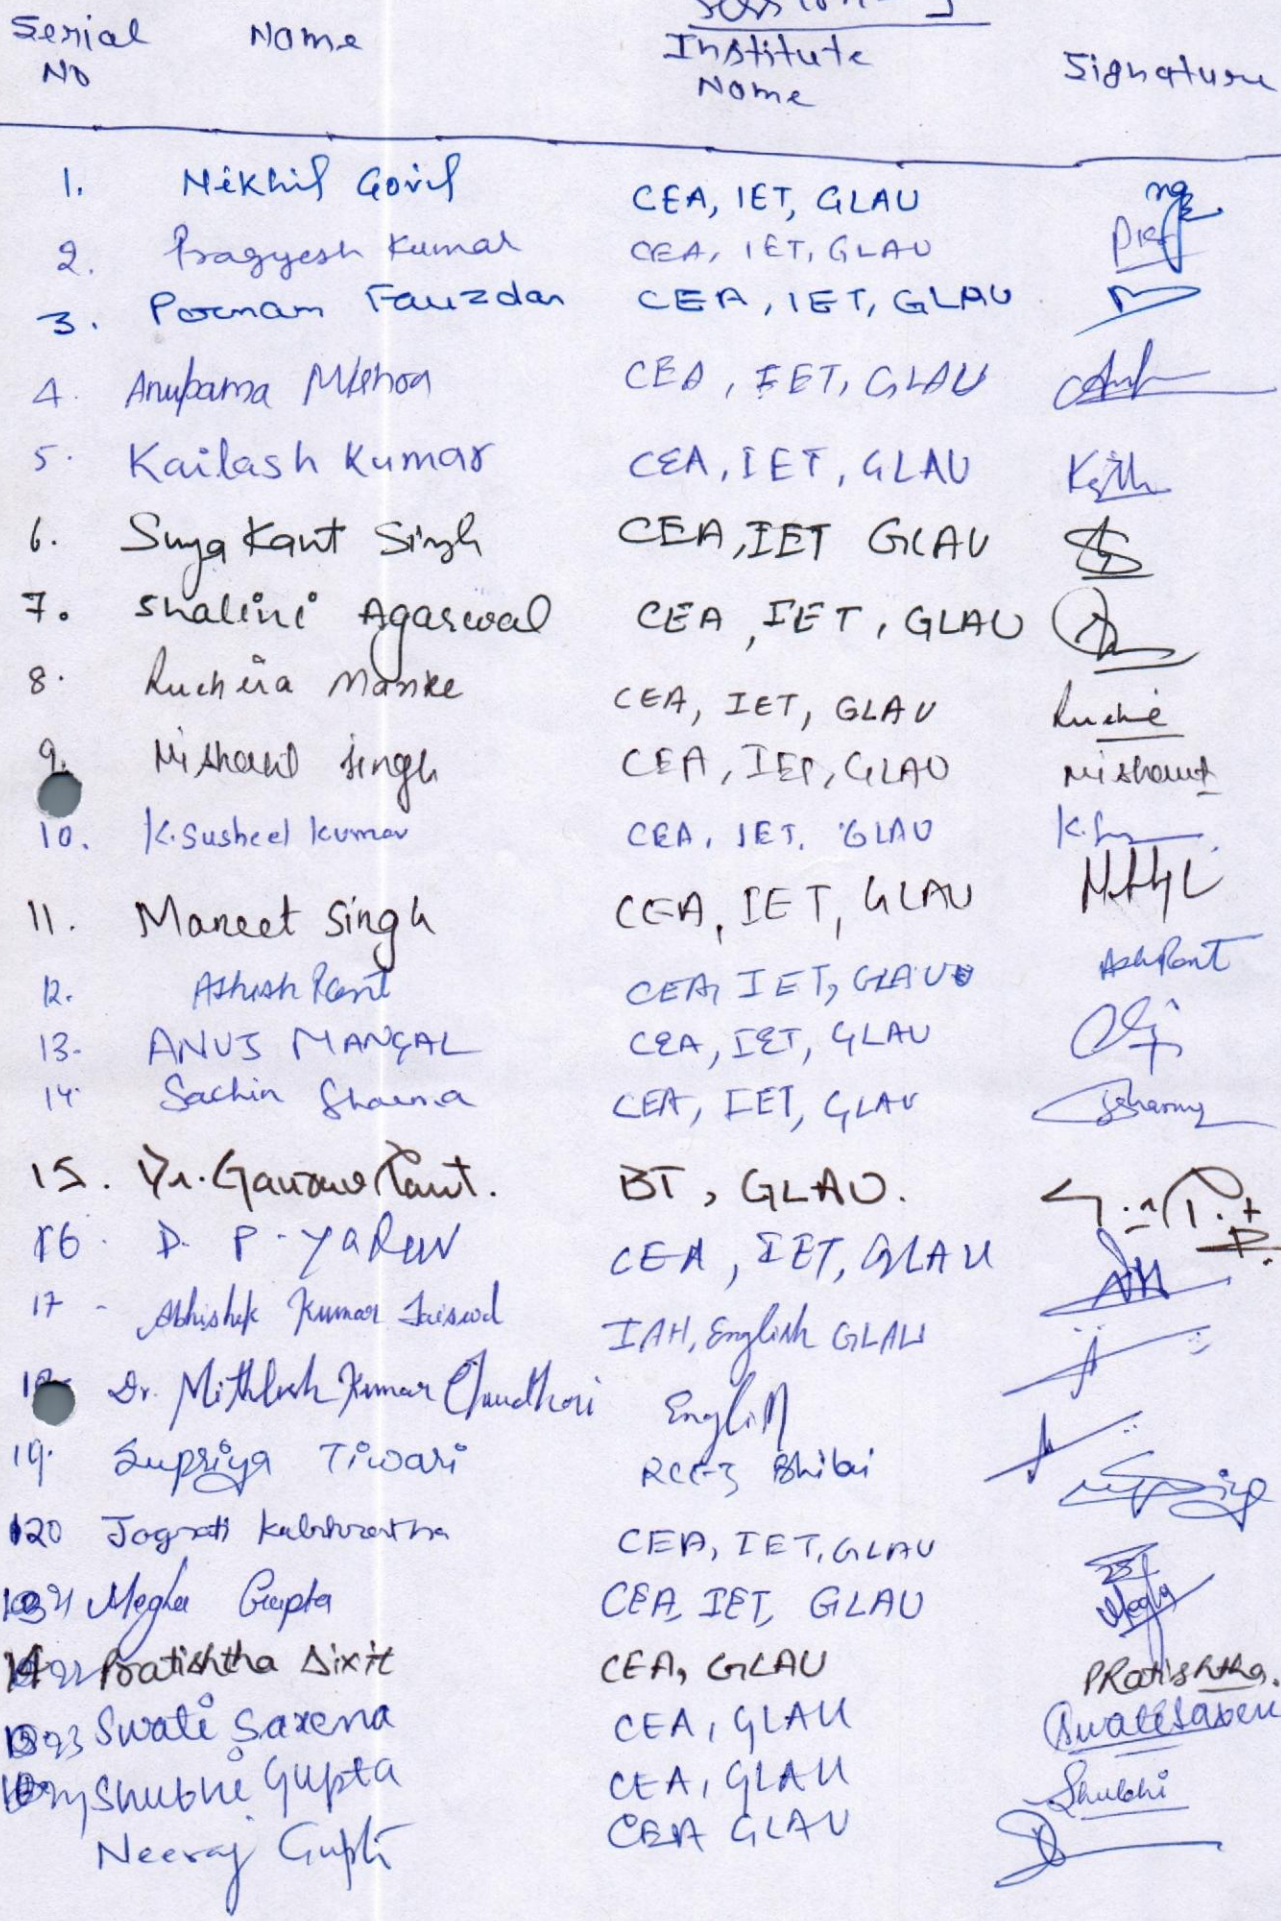 Session-
Serial No Name Institute Name Signature
1. Nikhil Govil CEA, IET, GLAU
2. Pragyesh Kumar CEA, IET, GLAU
3. Poonam Fauzdar CEA, IET, GLAU
4. Anupama Mishra CEA, IET, GLAU
5. Kailash Kumar CEA, IET, GLAU
6. Surya Kant Singh CEA, IET GLAU
7. Shalini Agarwal CEA, IET, GLAU
8. Ruchira Manke CEA, IET, GLAU
9. Nishant Singh CEA, IET, GLAU Nishant
10. K. Susheel Kumar CEA, IET. GLAU
11. Maneet Singh CEA, IET, GLAU
12. Ashish Pant CEA, IET, GLAU Ash Pant
13. ANUJ MANGAL CEA, IET, GLAU
14. Sachin Sharma CEA, IET, GLAU SSharma
15. Dr. Gaurav Pant. BT, GLAU.
16. D. P. YADAV CEA, IET, GLAU
17 - Abhishek Kumar Jaiswal IAH, English GLAU
18. Dr. Mithlesh Kumar Chaudhari English
19. Supriya Tiwari Bhilai
20 Jagrati CEA, IET, GLAU
21 Megha Gupta CEA, IET, GLAU Megha
22 Pratishtha Dixit CEA, GLAU PRatishtha.
23 Swati Saxena CEA, GLAU Swati Saxena
24 Shubhi Gupta CEA, GLAU Shubhi
Neeraj Gupta CEA GLAU